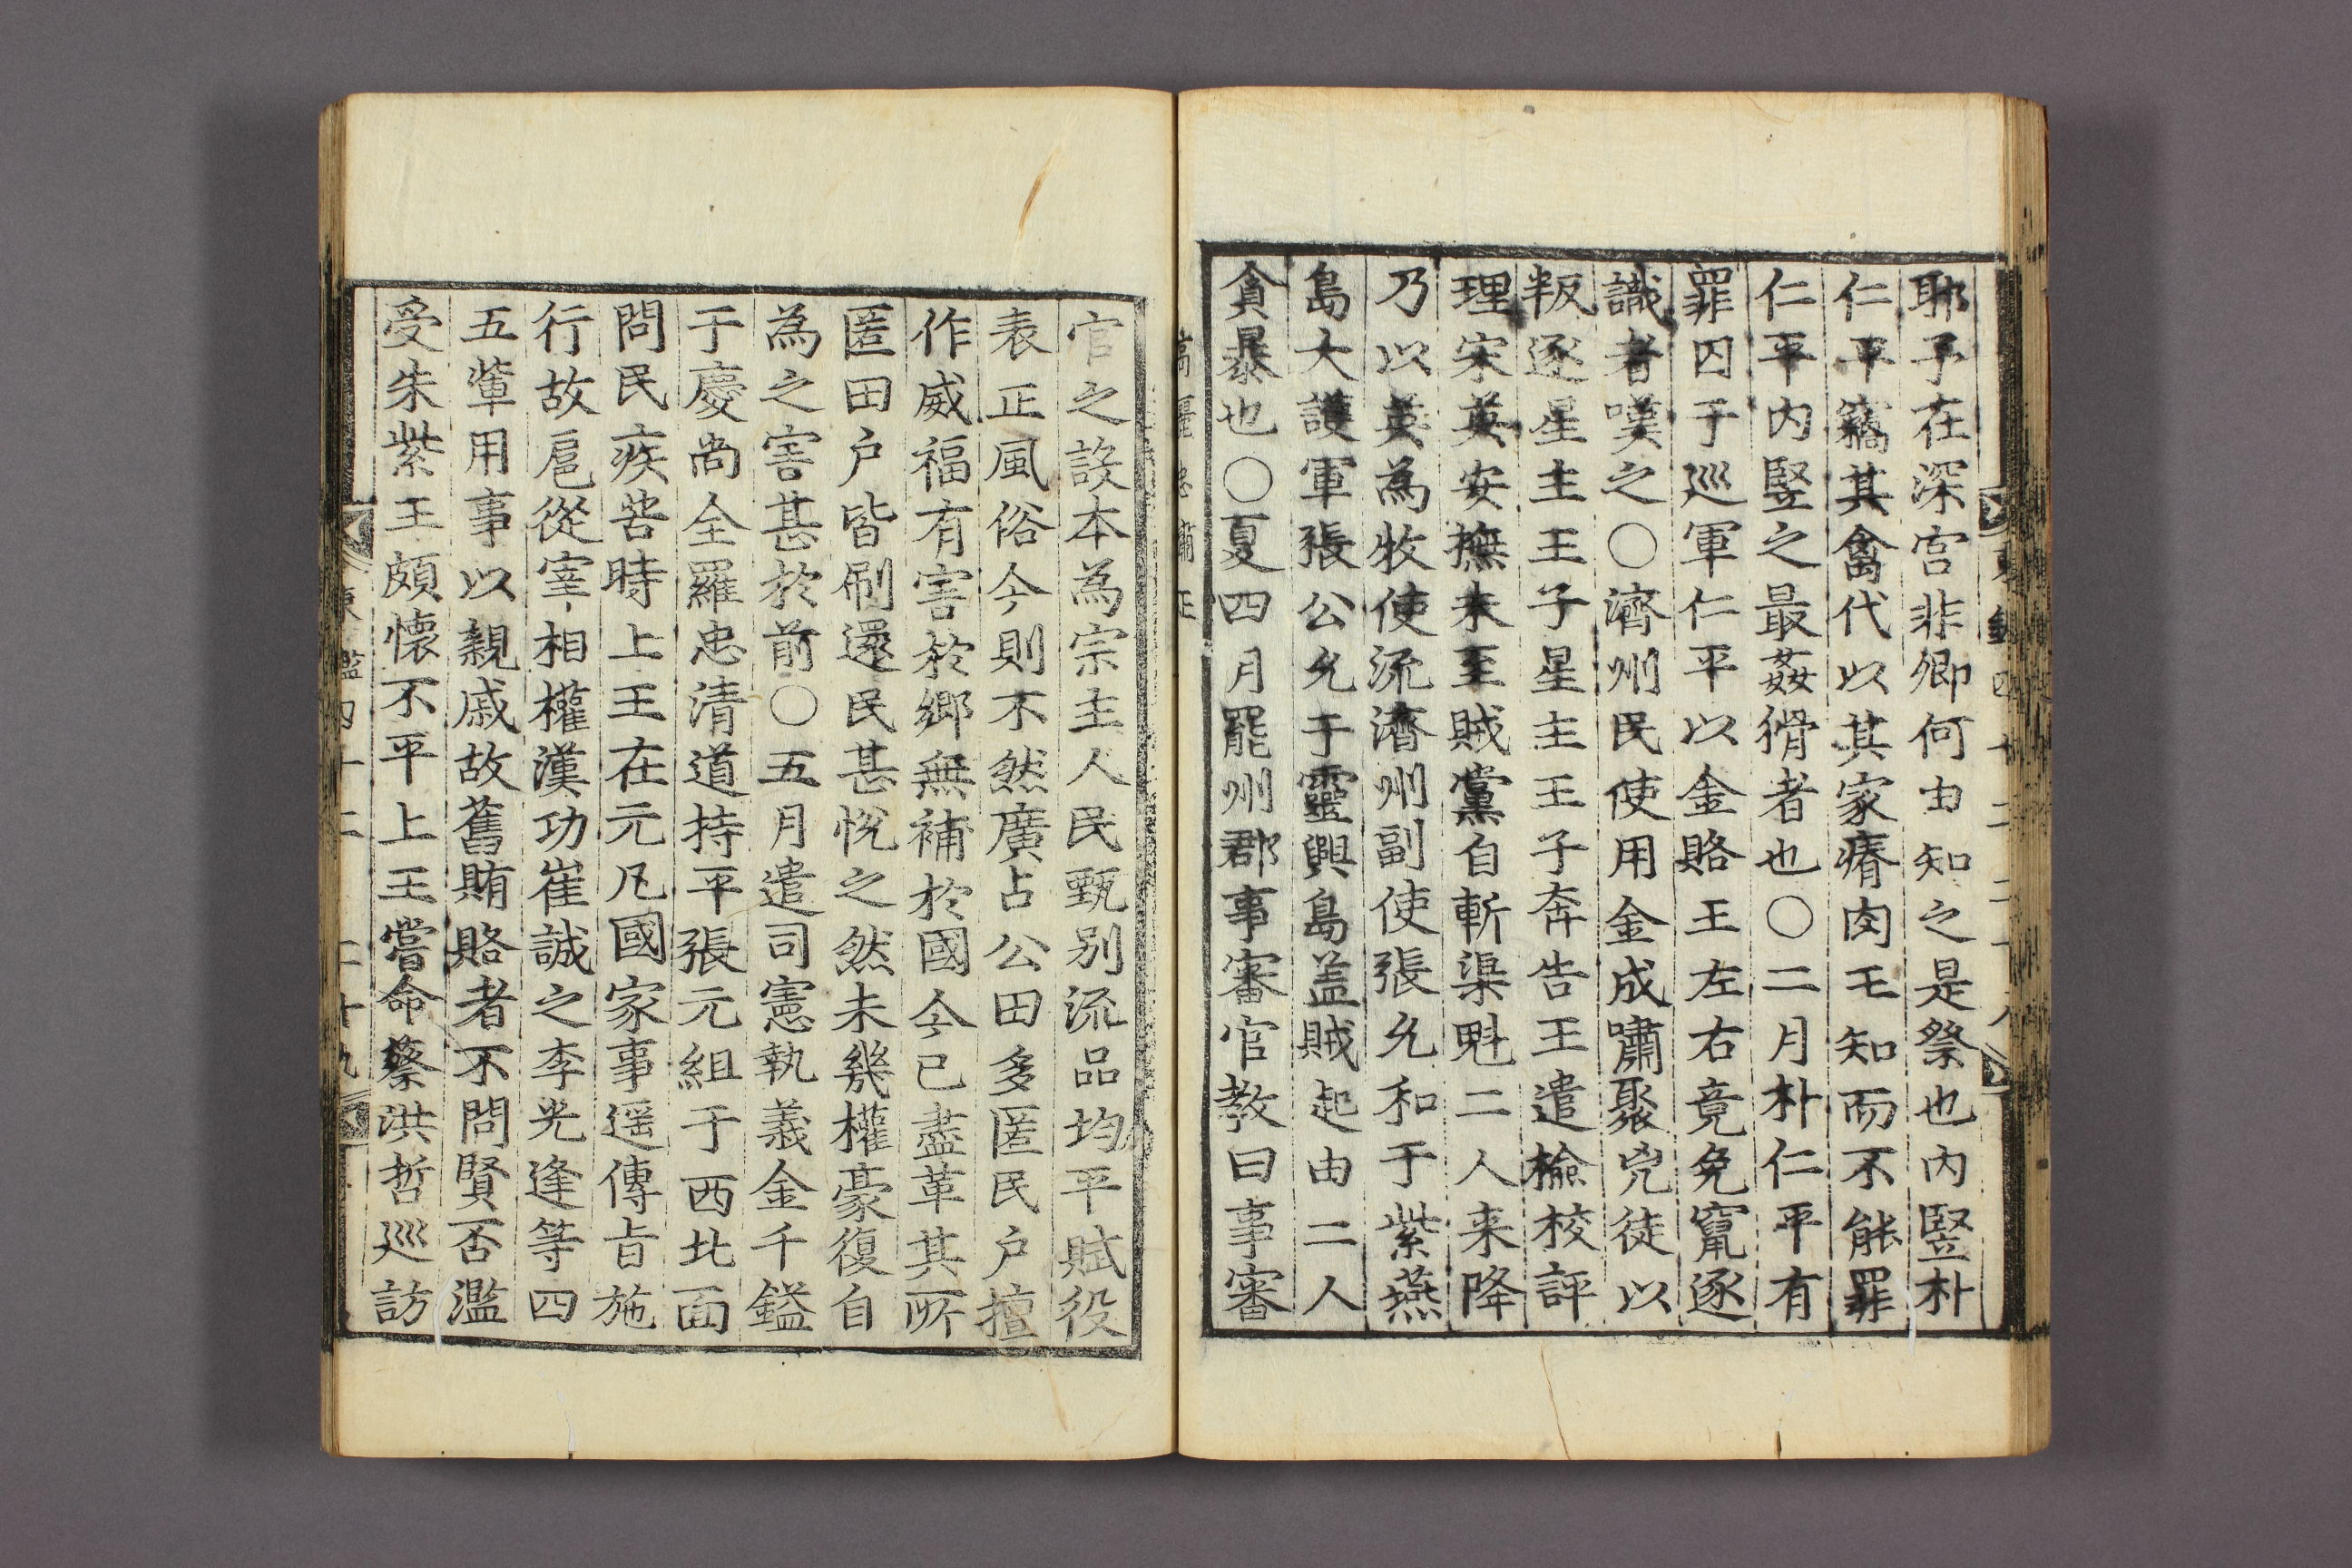 耶予在深宫非卿何由知之是祭也内竪朴
仁平竊其禽代以其家瘠肉王知而不能罪
仁平内竪之最姦猾者也○二月朴仁平有
罪囚于巡軍仁平以金賂王左右竟免竄逐
識者嘆之○濟州民使用金成嘯聚兇徒以
叛逐星主王子星主王子奔告王遣檢校評
理宋英安撫未至賊黨自斬渠魁二人来降
乃以英為牧使流濟州副使張允和于紫燕
島大護軍張公允于靈興島盖賊起由二人
貪暴也○夏四月罷州郡事審官教曰事審
官之設本為宗主人民甄别流品均平賦役
表正風俗今則不然廣占公田多匿民户擅
作威福有害於鄉無補於國今已盡革其所
匿田户皆刷還民甚悅之然未幾權豪復自
為之害甚於前○五月遣司憲執義金千鎰
于慶尚全羅忠清道持平張元組于西北面
問民疾苦時上王在元凡國家事遥傳旨施
行故扈從宰相權漢功崔誠之李光逢等四
五輩用事以親戚故舊賄賂者不問賢否濫
受朱紫王頗懷不平上王嘗命蔡洪哲巡訪
東鑑四十二 二十九